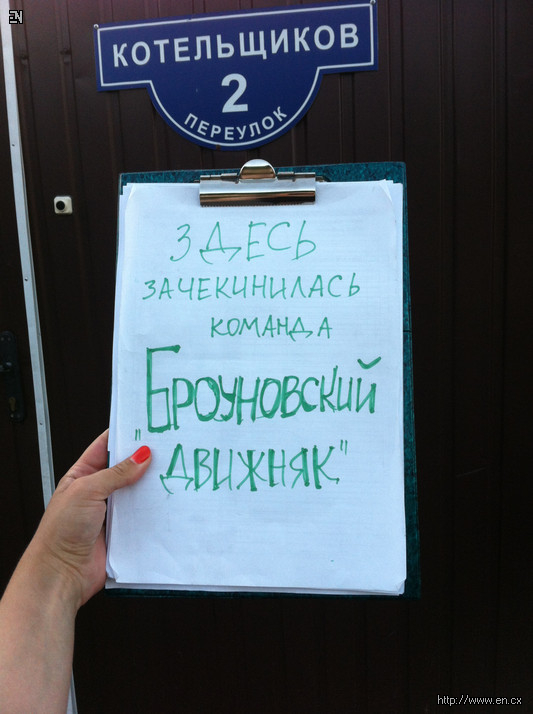 EN
КОТЕЛЬЩИКОВ
2
ПЕРЕУЛОК
ЗДЕСЬ
ЗАЧЕКИНИЛАСЬ
КОМАНДА
"БРОУНОВСКИЙ
ДВИЖНЯК"
http://www.en.cx